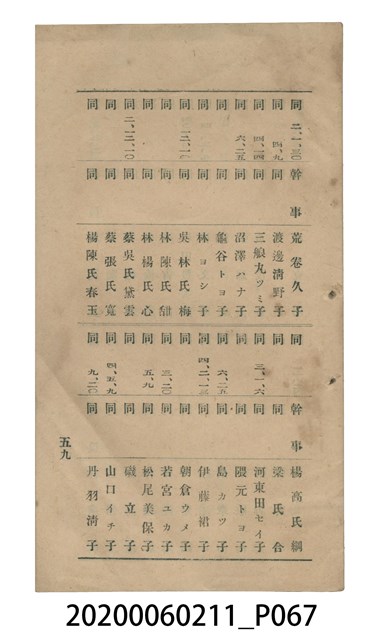 同 二、一、三〇 幹事 荒卷久子
同 四、九 同 渡邊淸野子
同 四、一四 同 三艘丸ツミ子
同 六、二五 同 沼澤ハナ子
同 同 龜谷トヨ子
同 同 林ヨシ子
同 同 吳林氏梅
同 同 林陳氏
同 同 林楊氏心
同 二、一三、一〇 同 蔡吳氏黛雲
同 同 蔡張氏寬
同 同 楊陳氏春玉
同 幹事 楊高氏綢
同 同 梁氏合
同 三、一、六 同 河東田セイ子
同 同 隈元トヨ子
同 六、二九 同 島カツ子
同 四、二、一三 同 伊藤裙子
同 同 朝倉ウメ子
同 三、二〇 同 若宮ユカ子
同 五、九 同 松尾美保子
同 同 磯立子
同 四、五、九 同 山口イチ子
同 九、二〇 同 丹羽淸子
五九
20200060211_P067